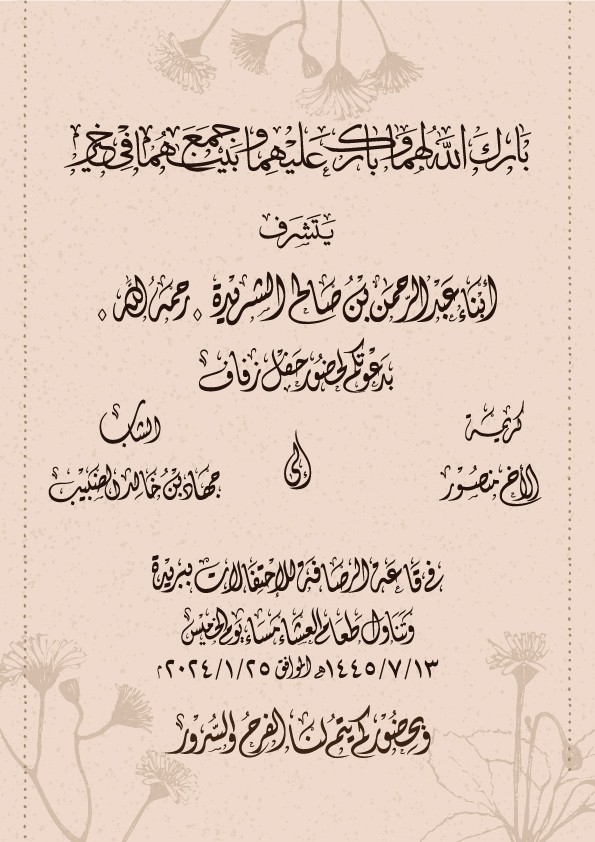 بَارك اللهُ لهُما وبَاركَ عَليْهِما وجَمع بينَهُما في خَير
يَتَشرَف
أبْنَاء عَبْد الرّحمن بْنُ صَالح الشريْدة . رحمهُ الله .
بدَعْوتكُم لحضُور حَفْل زفاف
كريمة
الأخ منصُوْر
إلى
الشاب
جهَاد بْنُ خَالد الضبيب
في قَاعَة الرصَافَة للإحتفَالات ببريْدة
وتَنَاول طعَام العشَاء مسَاء يوم الخميْس
١٤٤٥/٧/١٣هـ الموافق ٢٠٢٤/١/٢٥م
وبحضُوْركم يتمُ لنَا الفرحُ والسُرور